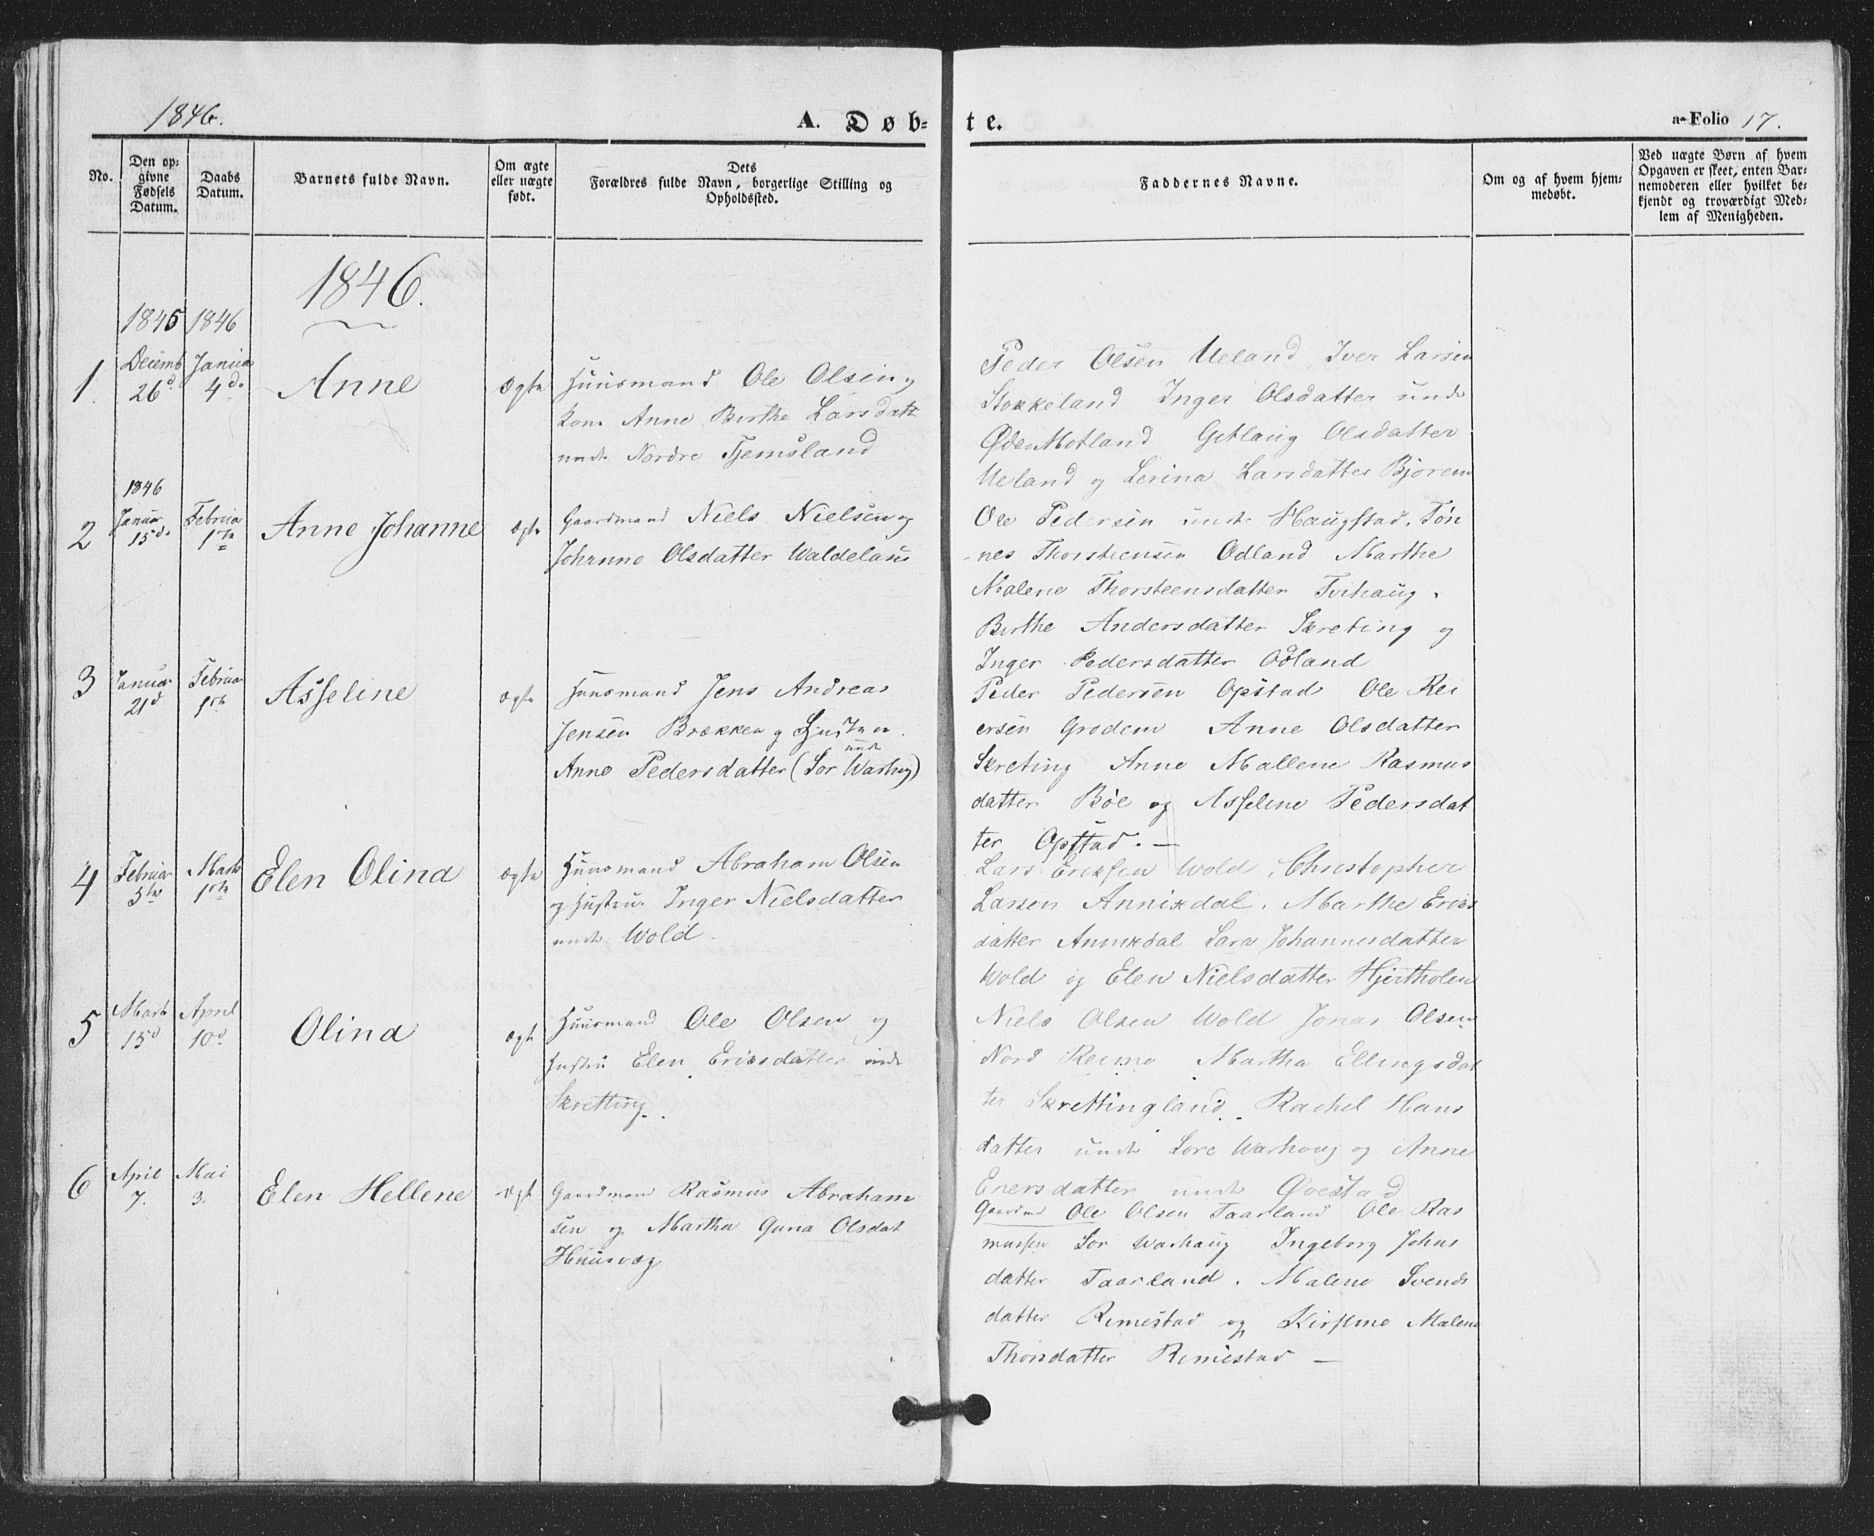 1846.
A. Døb-
te.
a-Folio 17.
No.
Den op-
givne
Fødsels
Datum.
Daabs
Datum.
Barnets fulde Navn.
Om ægte
eller uægte
født.
Dets
Forældres fulde Navn, borgerlige Stilling og
Opholdssted.
Faddernes Navne.
Om og af hvem hjem-
medøbt.
Ved uægte Børn af hvem
Opgaven er skeet, enten Bar-
nemoderen eller hvilket be-
kjendt og troværdigt Med-
lem af Menigheden.
1846.
1845 1846
1.
Decemb
26d
Januar
4d.
Anne
Ægte
Huusmand Ole Olsen og
Kone Anne Berthe Larsdatt
unde Nordre Tjemsland
Peder Olsen Ueland Iver Larsen
Stokkeland Inger Olsdatter unde
Øde Motland Getlaug Olsdatter
Ueland og Serina Larsdatter Bjorem
2
1846
Januar
15d.
Februar
1te
Anne Johanne
ægte
Gaardmand Niels Nielsen og
Johanne Olsdatter Waldeland
Ole Pedersen unde Haugstad. Tøn
nes Thorsteensen Odland Marthe
Malene Thorsteensdatter Tvihaug.
Berthe Andersdatter Skreting og
Inger Pedersdatter Odland
3
Januar
21d
Februar
1ste
Asseline
ægte
Huusmand Jens Andreas
Jensen Brækken og Hustru
Anne Pedersdatter (Sør unde Warhug)
Peder Pedersen Opstad Ole Rei
ersen Grødem Anne Olsdatter
Skreting Anne Mallene Rasmus
datter Bøe og Asseline Pedersdat
ter Opstad. —
4
Februar
5te
Marts
1ste
Elen Olina
ægte
Huusmand Abraham Olsen
og Hustru Inger Nielsdatter
unde Wold
Lars Eriksen Wold, Christopher
Larsen Annixdal. Marthe Erics
datter Annixdal Sara Johannesdatter
Wold og Elen Nielsdatter Hjertholen
5
Marts
15d
April
10d
Olina
ægte
Huusmand Ole Olsen og
Hustru Elen Ericsdatter unde
Skretting.
Niels Olsen Wold Jonas Olsen
Nord Reime Martha Ellingsdat
ter Skrettingland. Rachel Hans
datter unde Søre Warhoug og Anne
Enersdatter unde Øvestad
6
April
7.
Mai
3.
Elen Hellene
ægt
Gaardmand Rasmus Abraham
sen og Martha Guna Olsdat
Huusvæg
Gaardmd Ole Olsen Taarland Ole Ras
mussen Sør Warhaug Ingeborg Johns
datter Taarland. Malene Svends
datter Rimestad og Kirstine Malene
Thorsdatter Rimestad —